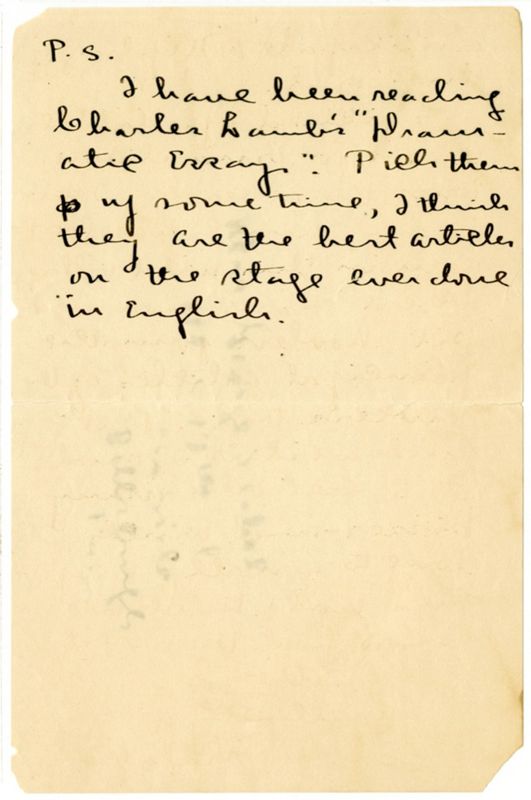 P. S.
I have been reading
Charles Lamb's "Dram-
atic Essays". Pick them
up some time, I think
they are the best articles
on the stage ever done
in English.